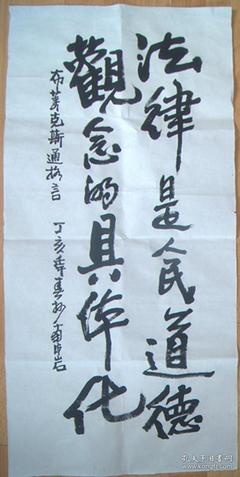 法律是人民道德
觀念的具体化
布莱克斯通格言
丁亥
孔夫子旧书网